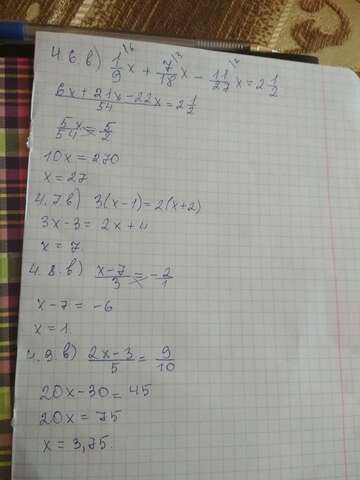 4.6 в) 1/9 x /6 + 7/18 x /3 - 11/27 x /2 = 2 1/2
(6x + 21x - 22x)/54 = 2 1/2
5x/54 = 5/2
10x = 270
x = 27
4.7 в) 3(x-1) = 2(x+2)
3x-3 = 2x+4
x = 7
4.8. в) (x-7)/3 = -2/1
x-7 = -6
x = 1.
4.9. в) (2x-3)/5 = 9/10
20x-30 = 45
20x = 75
x = 3,75.